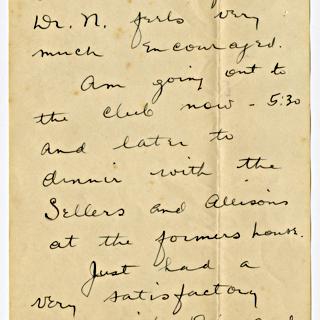 Dr. N. feels very
much encouraged.
Am going out to
the club now - 5:30
and later to
dinner with the
Sellers and Allisons
at the formers house.
Just had a
very satisfactory
and